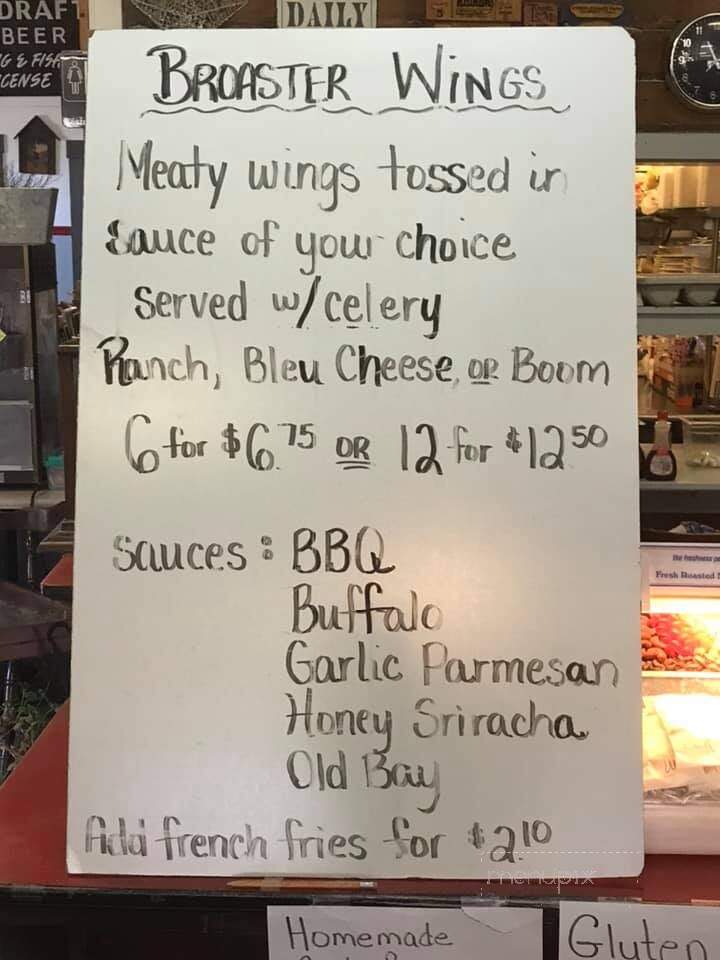 DRAFT
BEER
G & FISH
CENSE
DAILY
BROASTER WINGS
Meaty wings tossed in
sauce of your choice
served w/celery
Ranch, Bleu Cheese, OR Boom
6 for $6.75 OR 12 for $12.50
Sauces: BBQ
Buffalo
Garlic Parmesan
Honey Sriracha
Old Bay
Add french fries for $2.10
menupix
Fresh Roasted
Homemade
Gluten